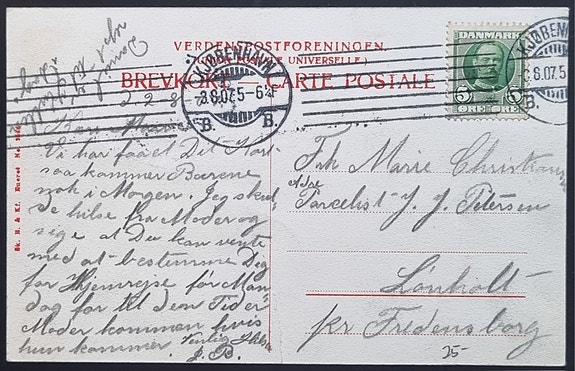 VERDENSPOSTFORENINGEN.
(UNION POSTALE UNIVERSELLE.)
BREVKORT. CARTE POSTALE
DANMARK
5 5
ØRE ØRE
KJØBENHAVN
8.8.07. 5-6
B. B.
KJØBENHAVN
8.8.07. 5
B.
Vi har faaet Dit Kort
saa kommer Børene
nok i Morgen. Jeg skul-
de hilse fra Moder og
sige at Du kan vente
med at bestemme Dig
for Hjemrejse før Man-
dag for til den Tid er
Moder kommen hvis
hun kommer. Venlig Hilsen
J. B.
Frk Marie Christians
Adr
Parcelist J. J. Petersen
Lönholt
pr Fredensborg
25-